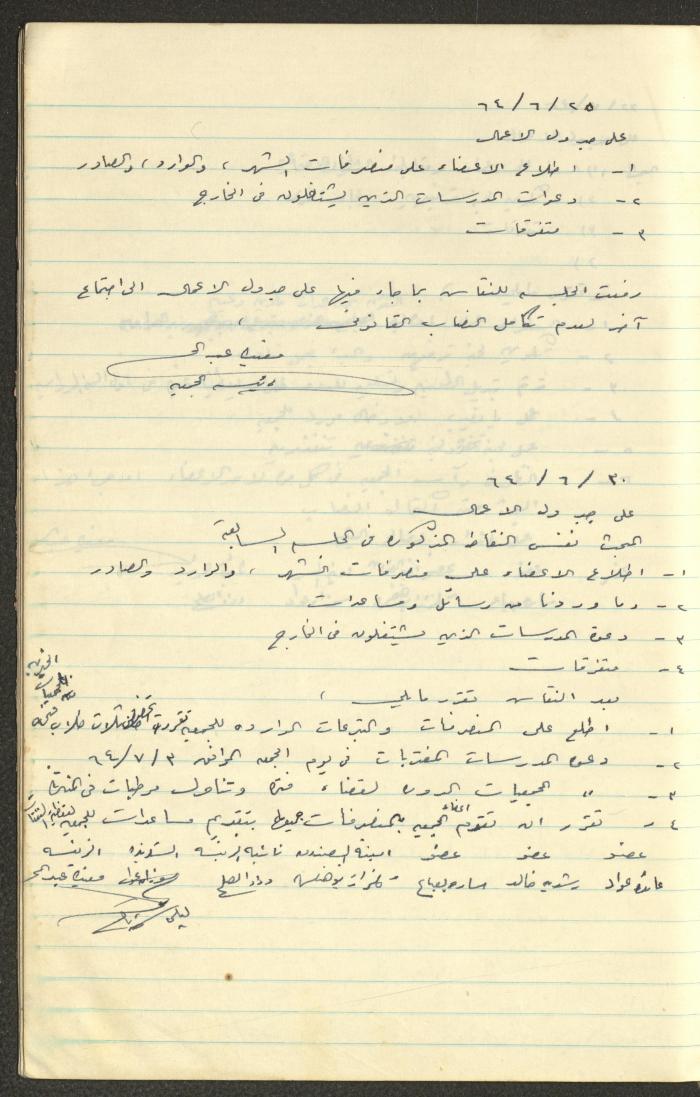 ٢٥/٦/٦٤
على جدول الاعمال
١- اطلاع الاعضاء على منصرفات الشهر ، والوارد ، والصادر
٢- دعوات المدرسات الذين يشتغلون فى الخارج
٣- متفرقات
رفعت الجلسه للنقاش بما جاء فيها على جدول الاعمال الى اجتماع
آخر لعدم تكامل النصاب القانونى
عبد الحى
رئيسة الجمعيه
٣٠/٦/٦٤
على جدول الاعمال
البحث نفس النقاط المذكوره فى الجلسه السابقة
١- اطلاع الاعضاء على منصرفات الشهر ، والوارد والصادر
٢- وما وردنا من رسائل ومساعدات
٣- دعوة المدرسات الذين يشتغلون فى الخارج
٤- متفرقات
بعد النقاش تقرر ما يلي ،
١- اطلع على المنصرفات والتبرعات الوارده للجمعيه تقررت ثلاث طلاب
٢- دعوه المدرسات المغتربات فى يوم الجمعه الموافق ٣/٧/٦٤
٣- " الجمعيات لقضاء فتره وتناول مرطبات فى
٤- تقرر ان تقوم اعضاء الجمعيه بتقديم مساعدات للجمعيه
عضو عضو عضو امينة الصندوق نائبة الرئيسة الرئيسه
عائده عواد رشديه خالد ساره وداد الصلح عبد الحى
ليلى